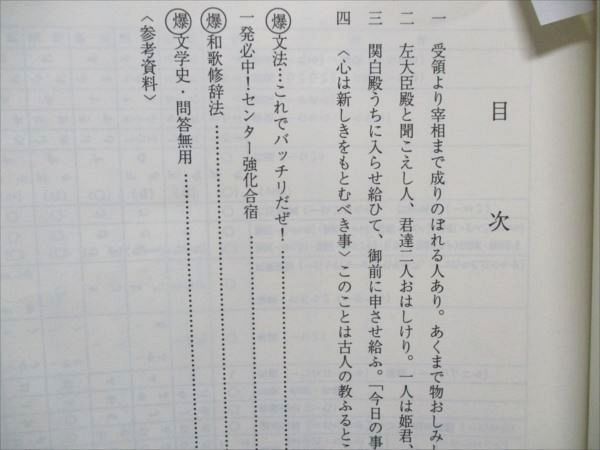 目次
一 受領より宰相まで成りのぼれる人あり。あくまで物おしみし
二 左大臣殿と聞こえし人、君達二人おはしけり。一人は姫君、
三 関白殿うちに入らせ給ひて、御前に申させ給ふ。「今日の事
四 〈心は新しきをもとむべき事〉このことは古人の教ふるとこ
爆文法…これでバッチリだぜ!
一発必中!センター強化合宿
爆和歌修辞法
爆文学史・問答無用
〈参考資料〉